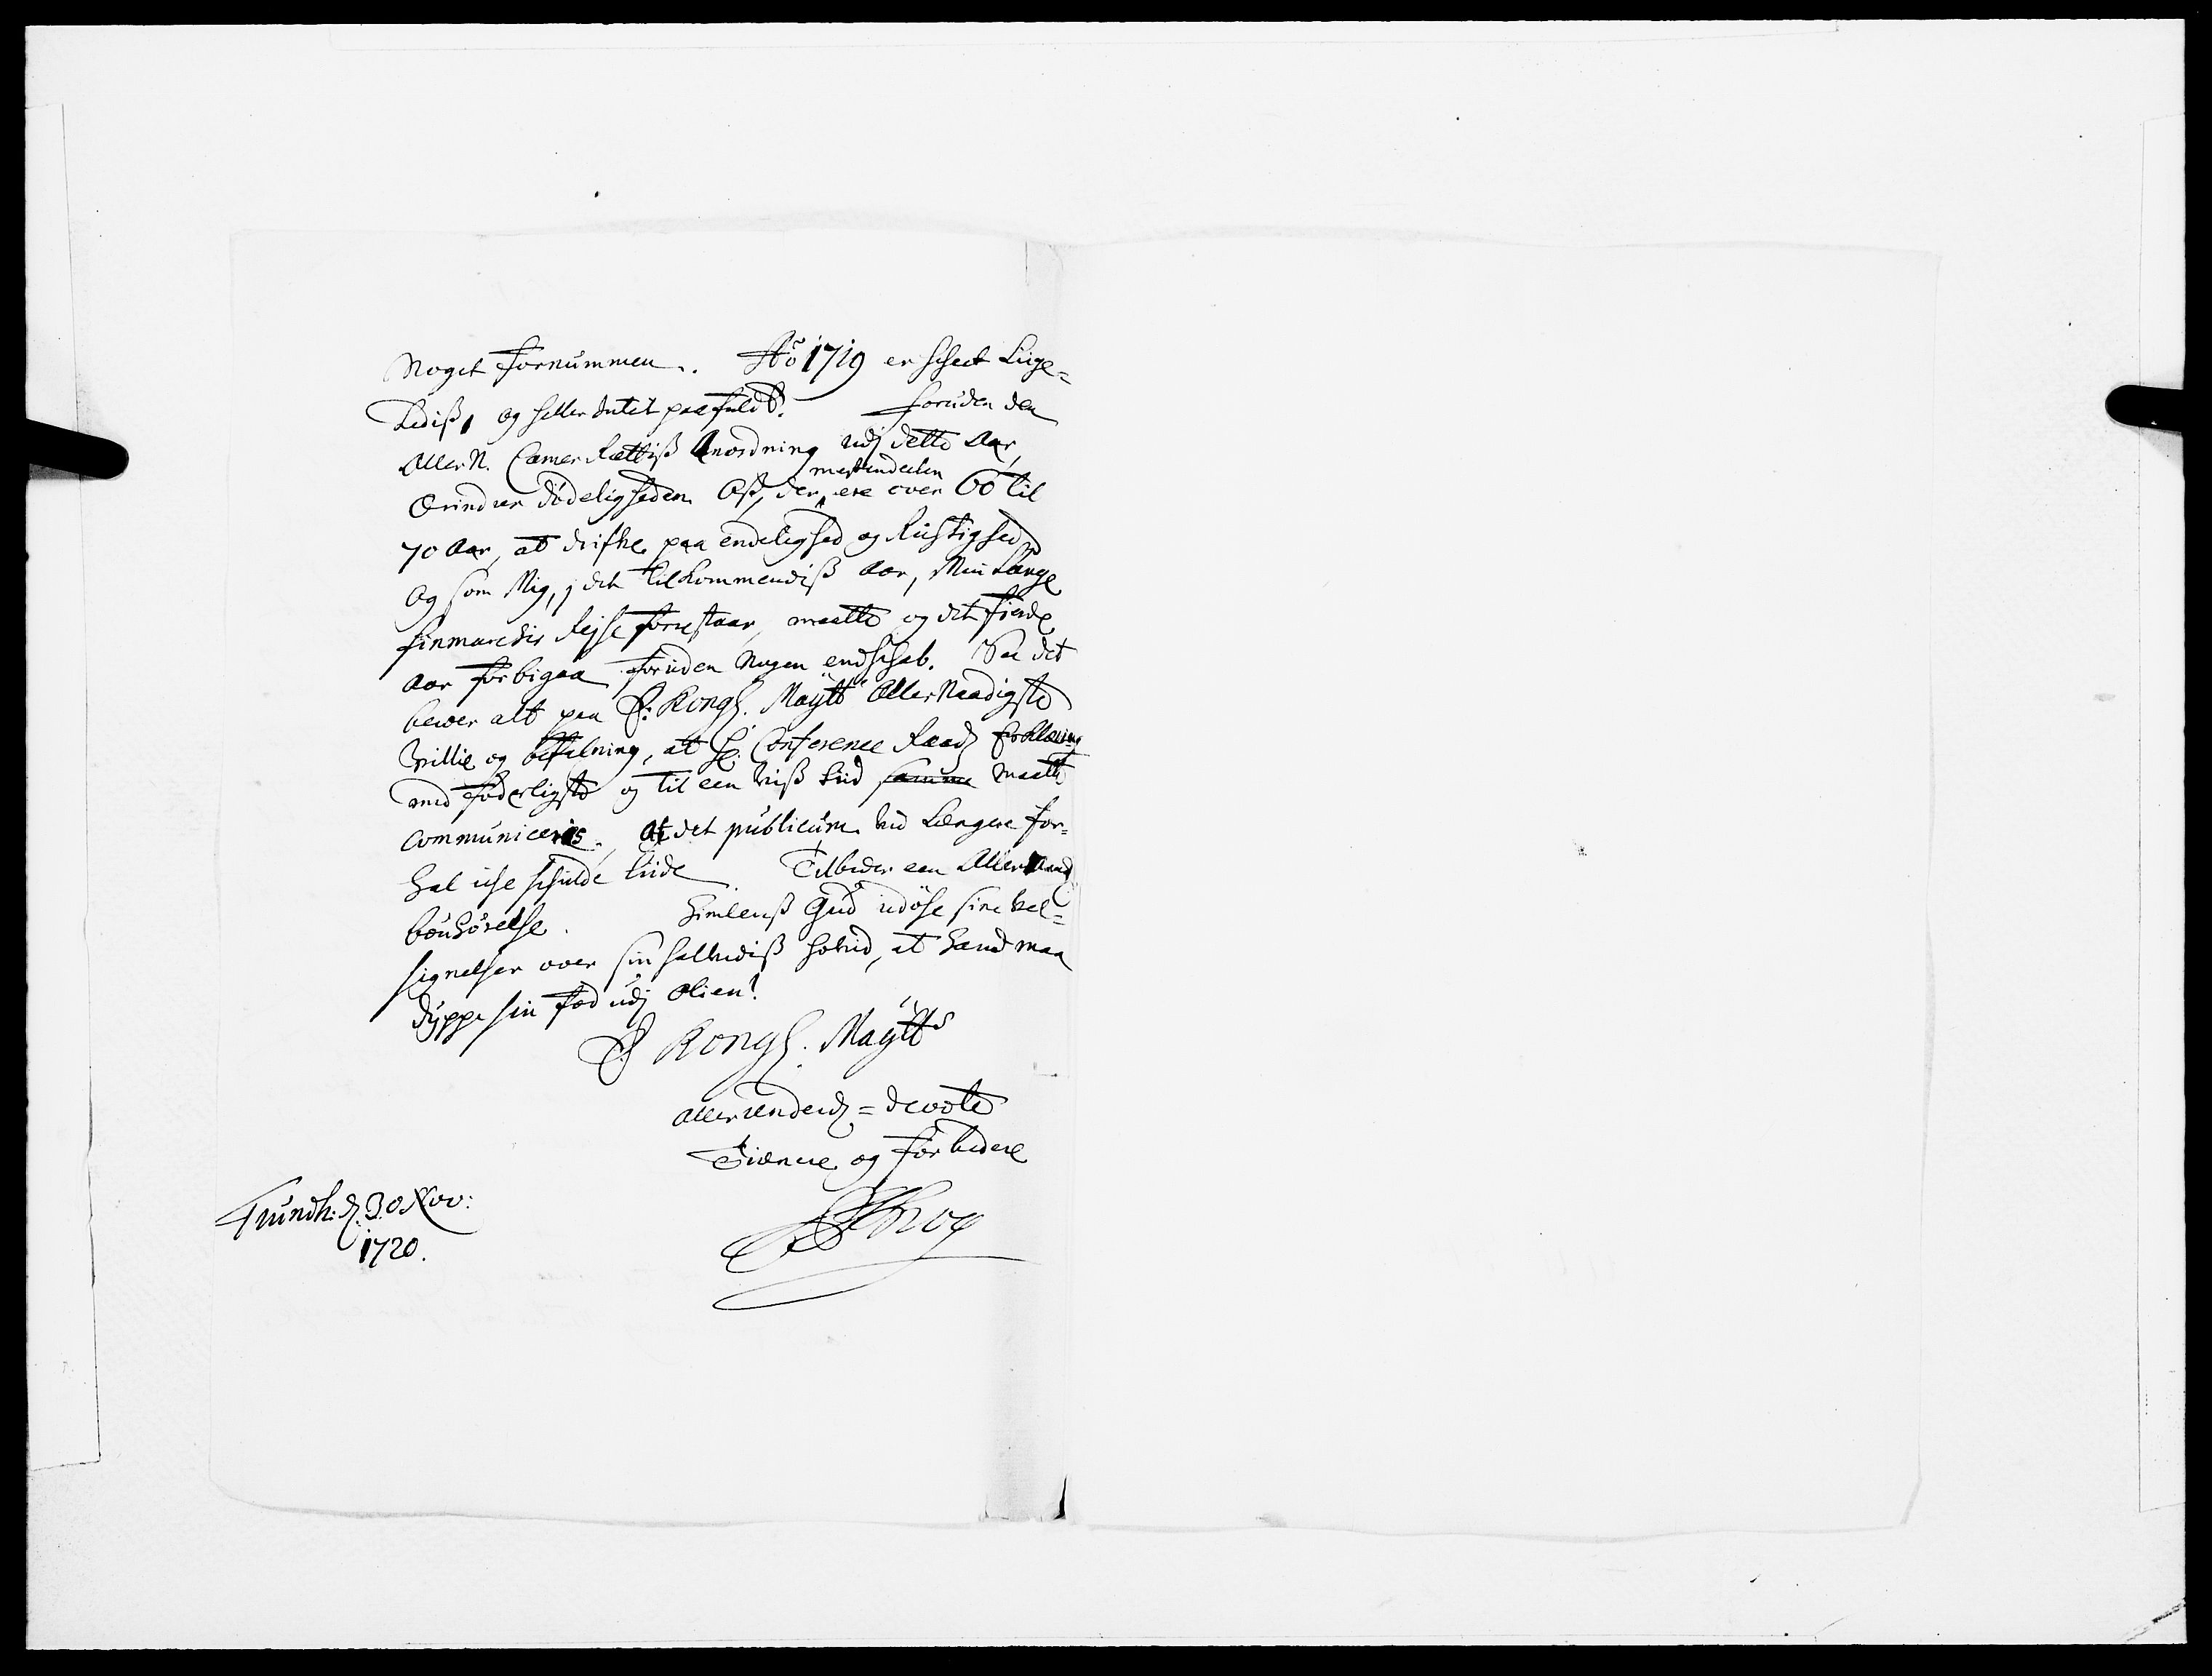 Noget fornummen. Aõ 1719 er skeet Liige=
Lediß, og heller Intet paafuldt. foruden den
Aller N. Camer Rettiß Anordning udj dette Aar,
Erindrer dødeligheden Oß, der mestendeelen ere over 60 til
70 Aar, at drifve paa endelighed og Rustighed
Og som Mig, j det tilkommendiß Aar, Min Lange
finmarckis Rejse forestaar, maatte og det fierde
Aar forbigaa foruden Nogen endskab. Saa det
beroer alt paa E: Kongl. Maÿtts Aller Naadigste
Villie og befalning, at H: Conference Raads Erklæring
med foderligste og til een viß tiid samme maatte
communiceris, At det publicum ved Længere for=
hal icke skulde liide. Tilbeder een Aller Naad
bønhørelse. Himlenß Gud udøse sine Vel=
signelser over sin salvediß hoved, at hand maa
dyppe sin fod udj Olien!
E Kongl. Maÿtts
allerunderd= devote
Tienere og forbedere
Krog
Trundh: d. 30 Nov:
1720.